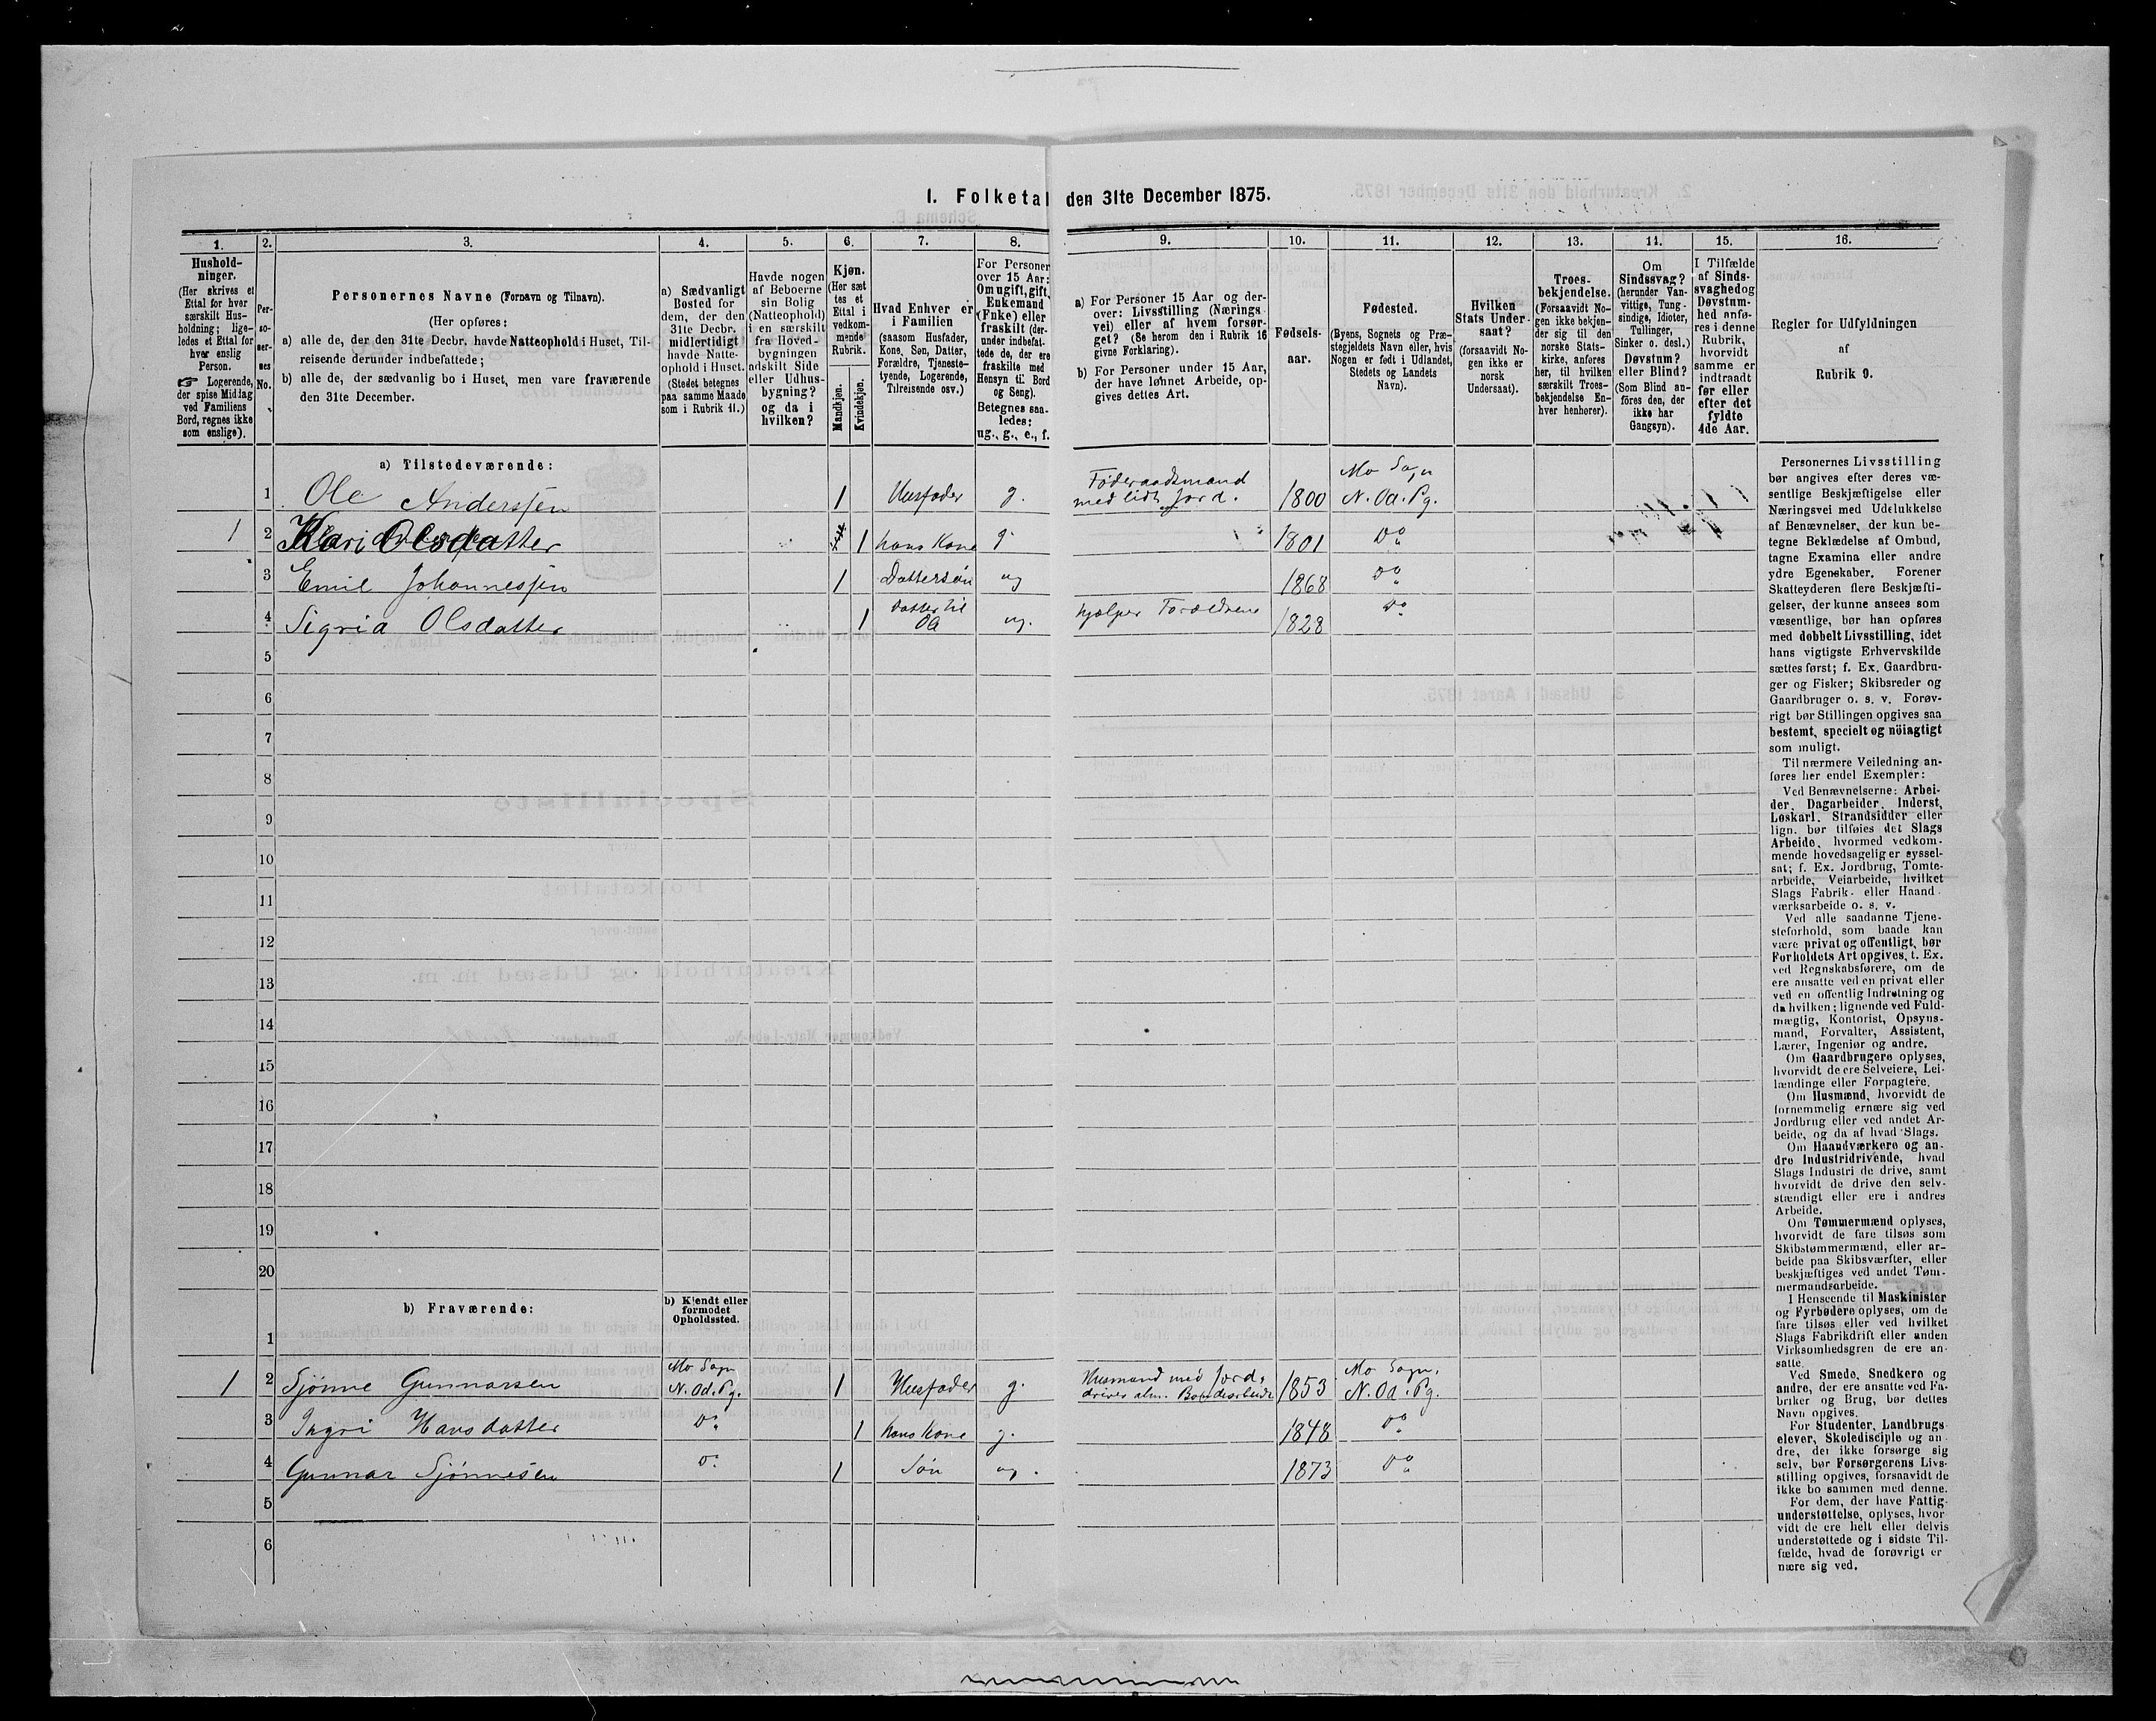 I. Folketal den 31te December 1875.
1.
2.
3.
4.
5.
6.
7.
8.
9.
10.
11.
12.
13.
14.
15.
16.
Hushold-
ninger.
(Her skrives et
Ettal for hver
særskilt Hus-
holdning; lige-
ledes et Ettal for
hver enslig
Person.
☞ Logerende,
der spise Middag
ved Familiens
Bord, regnes ikke
som enslige).
Per-
so-
ner-
nes
No.
Personernes Navne (Fornavn og Tilnavn).
(Her opføres:
a) alle de, der den 31te Decbr. havde Natteophold i Huset, Til-
reisende derunder indbefattede;
b) alle de, der sædvanlig bo i Huset, men vare fraværende
den 31te December.
a) Sædvanligt
Bosted for
dem, der den
31te Decbr.
midlertidigt
havde Natte-
ophold i Huset.
(Stedet betegnes
paa samme Maade
som i Rubrik 11.)
Havde nogen
af Beboerne
sin Bolig
(Natteophold)
i en særskilt
fra Hoved-
bygningen
adskilt Side
eller Udhus-
bygning?
og da i
hvilken?
Kjøn.
(Her sæt-
tes et
Ettal i
vedkom-
mende
Rubrik.
Mandkjøn.
Kvindekjøn.
Hvad Enhver er
i Familien
(saasom Husfader,
Kone, Søn, Datter,
Forældre, Tjeneste-
tyende, Logerende,
Tilreisende osv.)
For Personer
over 15 Aar:
Om ugift, gift,
Enkemand
(Enke) eller
fraskilt (der-
under indbefat-
tede de, der ere
fraskilte med
Hensyn til Bord
og Seng).
Betegnes saa-
ledes:
ug., g., e., f.
a) For Personer 15 Aar og der-
over: Livsstilling (Nærings
vei) eller af hvem forsør-
get? (Se herom den i Rubrik 16
givne Forklaring).
b) For Personer under 15 Aar,
der have lønnet Arbeide, op-
gives dettes Art.
Fødsels-
aar.
Fødested.
(Byens, Sognets og Præ-
stegjeldets Navn eller, hvis
Nogen er født i Udlandet,
Stedets og Landets
Navn).
Hvilken
Stats Under
saat?
(forsaavidt No-
gen ikke er
norsk
Undersaat).
Troes-
bekjendelse.
(Forsaavidt No-
gen ikke bekjen-
der sig til den
norske Stats-
kirke, anføres
her, til hvilken
særskilt Troes-
bekjendelse En-
hver henhører).
Om
Sindssvag?
(herunder Van-
vittige, Tung-
sindige, Idioter,
Tullinger,
Sinker o. desl.)
Døvstum?
eller Blind?
(Som Blind an-
føres den, der
ikke har
Gangsyn).
I Tilfælde
af Sinds-
svaghed og
Døvstum-
hed anfø-
res i denne
Rubrik,
hvorvidt
samme er
indtraadt
før eller
efter det
fyldte
4de Aar.
Regler for Udfyldningen
af
Rubrik 9.
a) Tilstedeværende:
1 Ole Anderssen 1 Husfader g. Føderaadsmand med lidt Jord. 1800 Mo Sogn N. Od. Pg.
1 2 Kari Olsdatter 1 hans Kone g. 1801 Do
3 Emil Johannessen 1 Dattersøn ug 1868 Do
4 Sigria Olsdatter 1 datter til Ole ug. hjælper Forældrene 1828 Do
5
6
7
8
9
10
11
12
13
14
15
16
17
18
19
20
b) Fraværende:
b) Kjendt eller
formodet
Opholdssted.
1
1 2 Sjønne Gunnarsen Mo Sogn N. Od. Pg. 1 Husfader g. Husmand med Jord, driver alm. Bondearbeide 1853 Mo Sogn. N. Od. Pg.
3 Ingri Hansdatter Do 1 Hans Kone g. 1848 Do
4 Gunnar Sjønnesen Do 1 Søn ug. 1873 Do
5
6
Personernes Livsstilling
bør angives efter deres væ-
sentlige Beskjæftigelse eller
Næringsvei med Udelukkelse
af Benævnelser, der kun be-
tegne Beklædelse af Ombud,
tagne Examina eller andre
ydre Egenskaber. Forener
Skatteyderen flere Beskjæfti-
gelser, der kunne ansees som
væsentlige, bør han opføres
med dobbelt Livsstilling, idet
hans vigtigste Erhvervskilde
sættes først; f. Ex. Gaardbru-
ger og Fisker; Skibsreder og
Gaardbruger o. s. v. Forøv-
rigt bør Stillingen opgives saa
bestemt, specielt og nöiagtigt
som muligt.
Til nærmere Veiledning an-
føres her endel Exempler:
Ved Benævnelserne: Arbei-
der, Dagarbeider, Inderst,
Løskarl, Strandsidder eller
lign. bør tilføies det Slags
Arbeide, hvormed vedkom-
mende hovedsagelig er syssel-
sat; f. Ex. Jordbrug, Tomte-
arbeide, Veiarbeide, hvilket
Slags Fabrik- eller Haand-
værksarbeide o. s. v.
Ved alle saadanne Tjene-
steforhold, som baade kan
være privat og offentligt, bør
Forholdets Art opgives, t. Ex.
ved Regnskabsførere, om de
ere ansatte ved en privat eller
ved en offentlig Indretning og
da hvilken; lignende ved Fuld-
mægtig, Kontorist, Opsyns-
mand, Forvalter, Assistent,
Lærer, Ingeniør og andre.
Om Gaardbrugere oplyses,
hvorvidt de ere Selveiere, Lei-
lændinge eller Forpagtere.
Om Husmænd, hvorvidt de
fornemmelig ernære sig ved
Jordbrug eller ved andet Ar-
beide, og da af hvad Slags.
Om Haandværkere og an-
dre Industridrivende, hvad
Slags Industri de drive, samt
hvorvidt de drive den selv-
stændigt eller ere i andres
Arbeide.
Om Tømmermænd oplyses,
hvorvidt de fare tilsøs som
Skibstømmermænd, eller ar-
beide paa Skibsværfter, eller
beskjæftiges ved andet Tøm-
mermandsarbeide.
I Henseende til Maskinister
og Fyrbødere oplyses, om de
fare tilsøs eller ved hvilket
Slags Fabrikdrift eller anden
Virksomhedsgren de ere an-
satte.
Ved Smede, Snedkere og
andre, der ere ansatte ved Fa-
briker og Brug, bør dettes
Navn opgives.
For Studenter, Landbrugs
elever, Skoledisciple og an-
dre, der ikke forsørge sig
selv, bør Forsørgerens Livs-
stilling opgives, forsaavidt de
ikke bo sammen med denne.
For dem, der have Fattig-
understøttelse, oplyses, hvor
vidt de ere helt eller delvis
understøttede og i sidste Til-
fælde, hvad de forøvrigt er
nære sig ved.